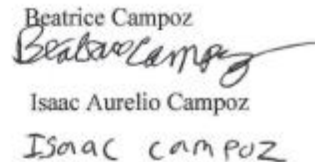 Beatrice Campoz
Beatrice Campoz
Isaac Aurelio Campoz
Isaac campoz